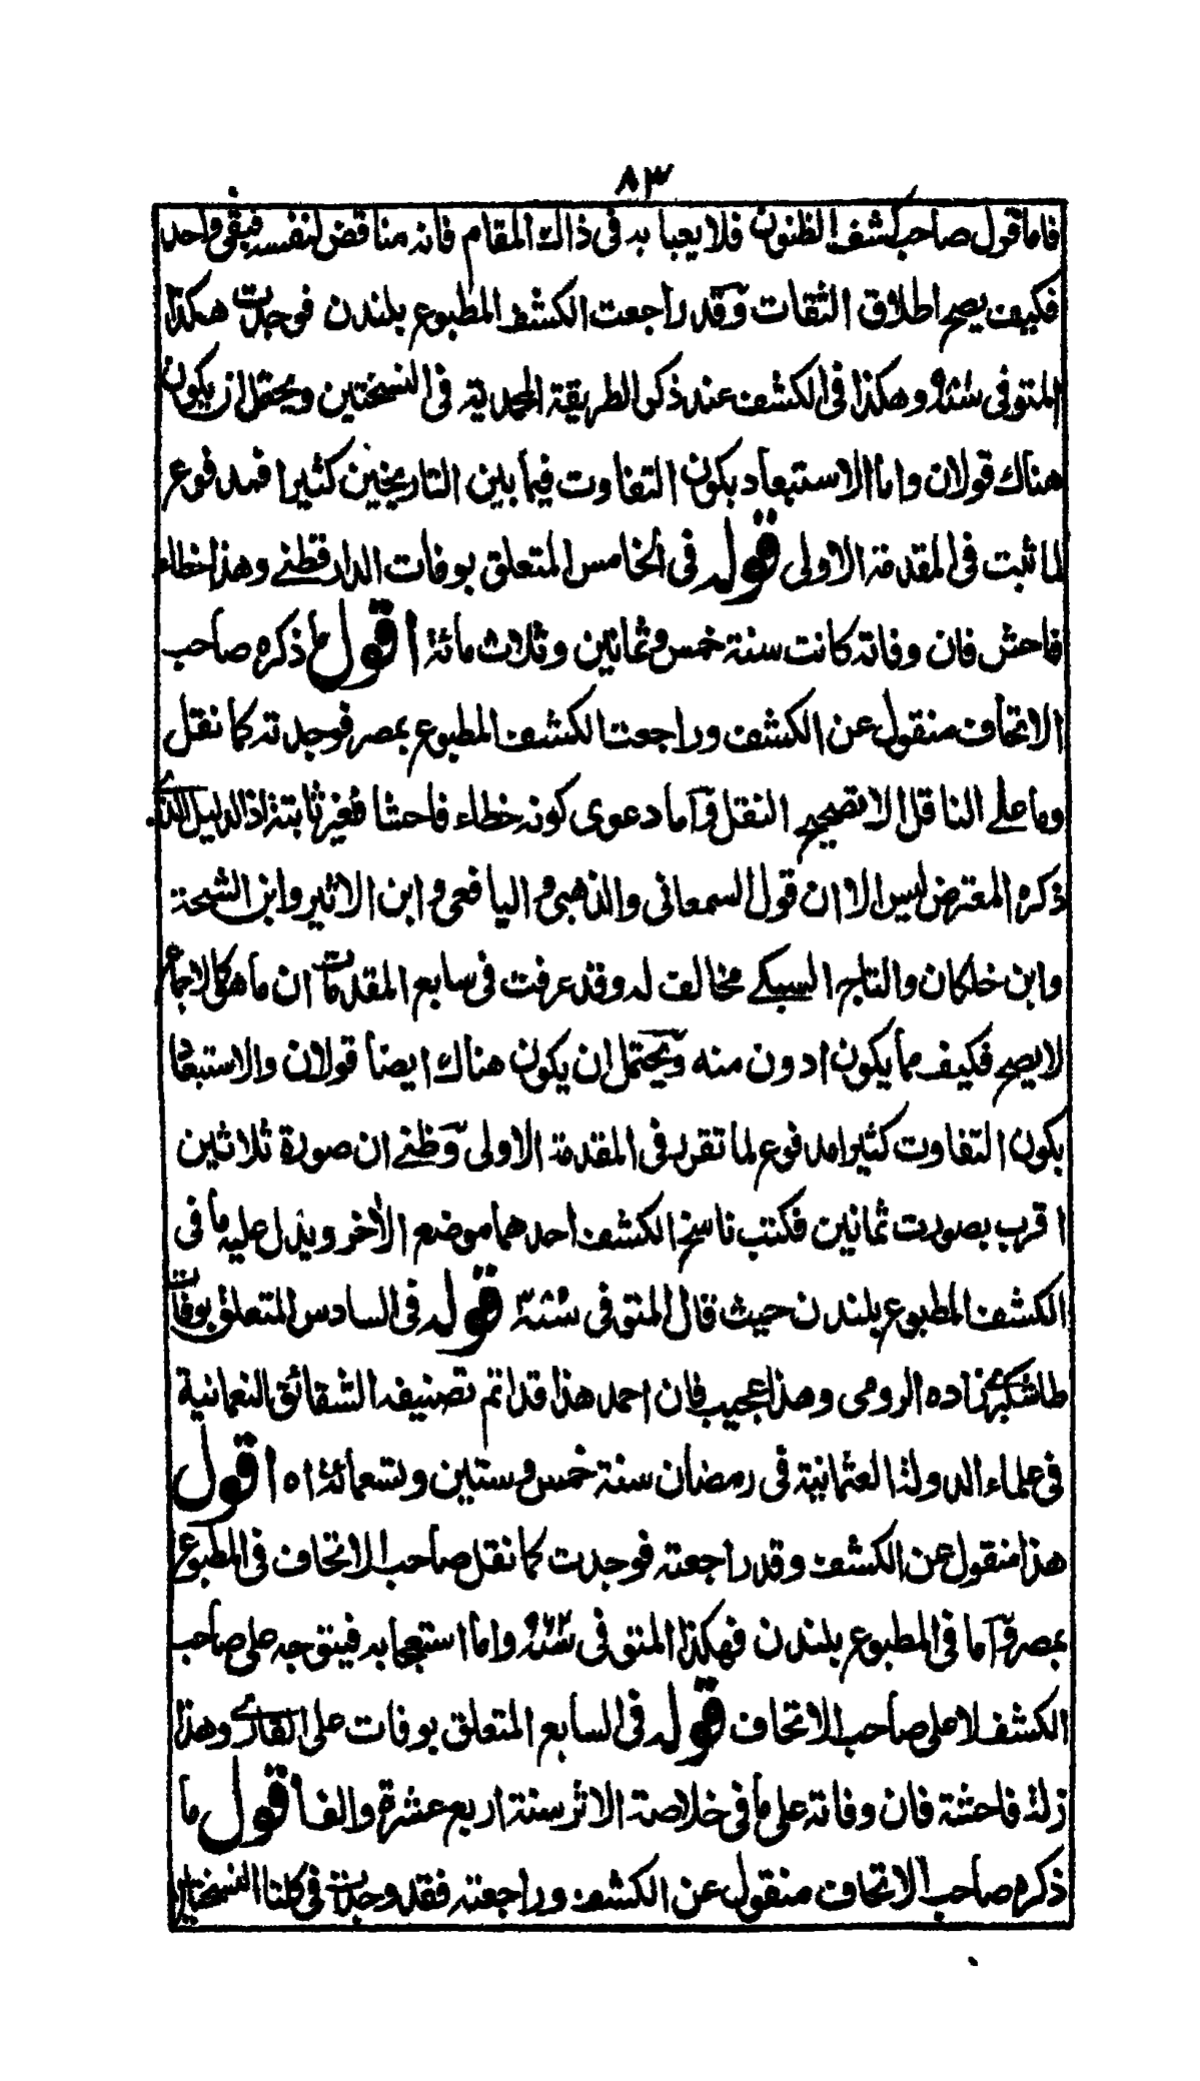 ٨٣
فاما قول صاحب كشف الظنون فلا يعبأ به فى ذالك المقام فانه مناقض لنفسه فبقى واحد
فكيف يصح اطلاق الثقات وقد راجعت الكشف المطبوع بلندن فوجدت هكذا
المتوفى وهكذا فى الكشف عند ذكر الطريقة المحمدية فى النسختين ويحتمل ان يكون
هناك قولان واما الاستبعاد بكون التفاوت فيما بين التاريخين كثيرا فمدفوع
لما ثبت فى المقدمة الاولى قوله فى الخامس المتعلق بوفات الدارقطنے وهذا خطاء
فاحش فان وفاته كانت سنة خمس وثمانين وثلاث مائة اقول ما ذكره صاحب
الاتحاف منقول عن الكشف وراجعت الكشف المطبوع بمصر فوجدته كما نقل
وما على الناقل الا تصحيح النقل واما دعوى كونه خطاء فاحشا فغير ثابتة اذ الدليل الذى
ذكره المعترض ليس الا ان قول السمعانى والذهبى واليافعى وابن الاثير وابن الشحنة
وابن خلكان والتاج السبكے مخالف له وقد عرفت فى سابع المقدمات ان ما هو كالاجماع
لا يصح فكيف بما يكون ادون منه ويحتمل ان يكون هناك ايضا قولان والاستبعاد
بكون التفاوت كثيرا مدفوع لما تقرر فى المقدمة الاولى وظنے ان صورة ثلاثين
اقرب بصورت ثمانين فكتب ناسخ الكشف احدهما موضع الآخر ويدل عليه ما فى
الكشف المطبوع بلندن حيث قال المتوفى قوله فى السادس المتعلق بوفات
طاشكبرے زاده الرومى وهذا عجيب فان احمد هذا قد اتم تصنيفه الشقائق النعمانية
فى علماء الدولة العثمانية فى رمضان سنة خمس وستين وتسعمائة اه اقول
هذا منقول عن الكشف وقد راجعته فوجدت كما نقل صاحب الاتحاف فى المطبوع
بمصر واما فى المطبوع بلندن فهكذا المتوفى واما استعجابه فيتوجه على صاحب
الكشف لا على صاحب الاتحاف قوله فى السابع المتعلق بوفات على القارے وهذا
زلة فاحشة فان وفاته على ما فى خلاصة الاثر سنة اربع عشرة والف اقول ما
ذكره صاحب الاتحاف منقول عن الكشف وراجعته فقد وجدت فى كلتا النسختين